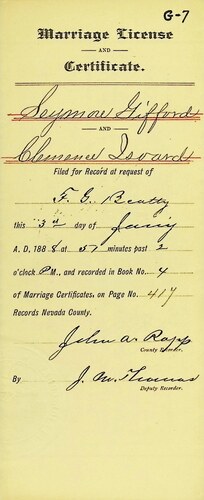 G-7
Marriage License
AND
Certificate.
Seymore Gifford
AND
Clemence Isoard
Filed for Record at request of
F. G. Beatty
this 3rd day of Jany
A. D. 1888 at 51 minutes past 2
o'clock P.M., and recorded in Book No. 4
of Marriage Certificates, on Page No. 417
Records Nevada County.
John A. Rapp
County Recorder.
By J. M. Thomas
Deputy Recorder.